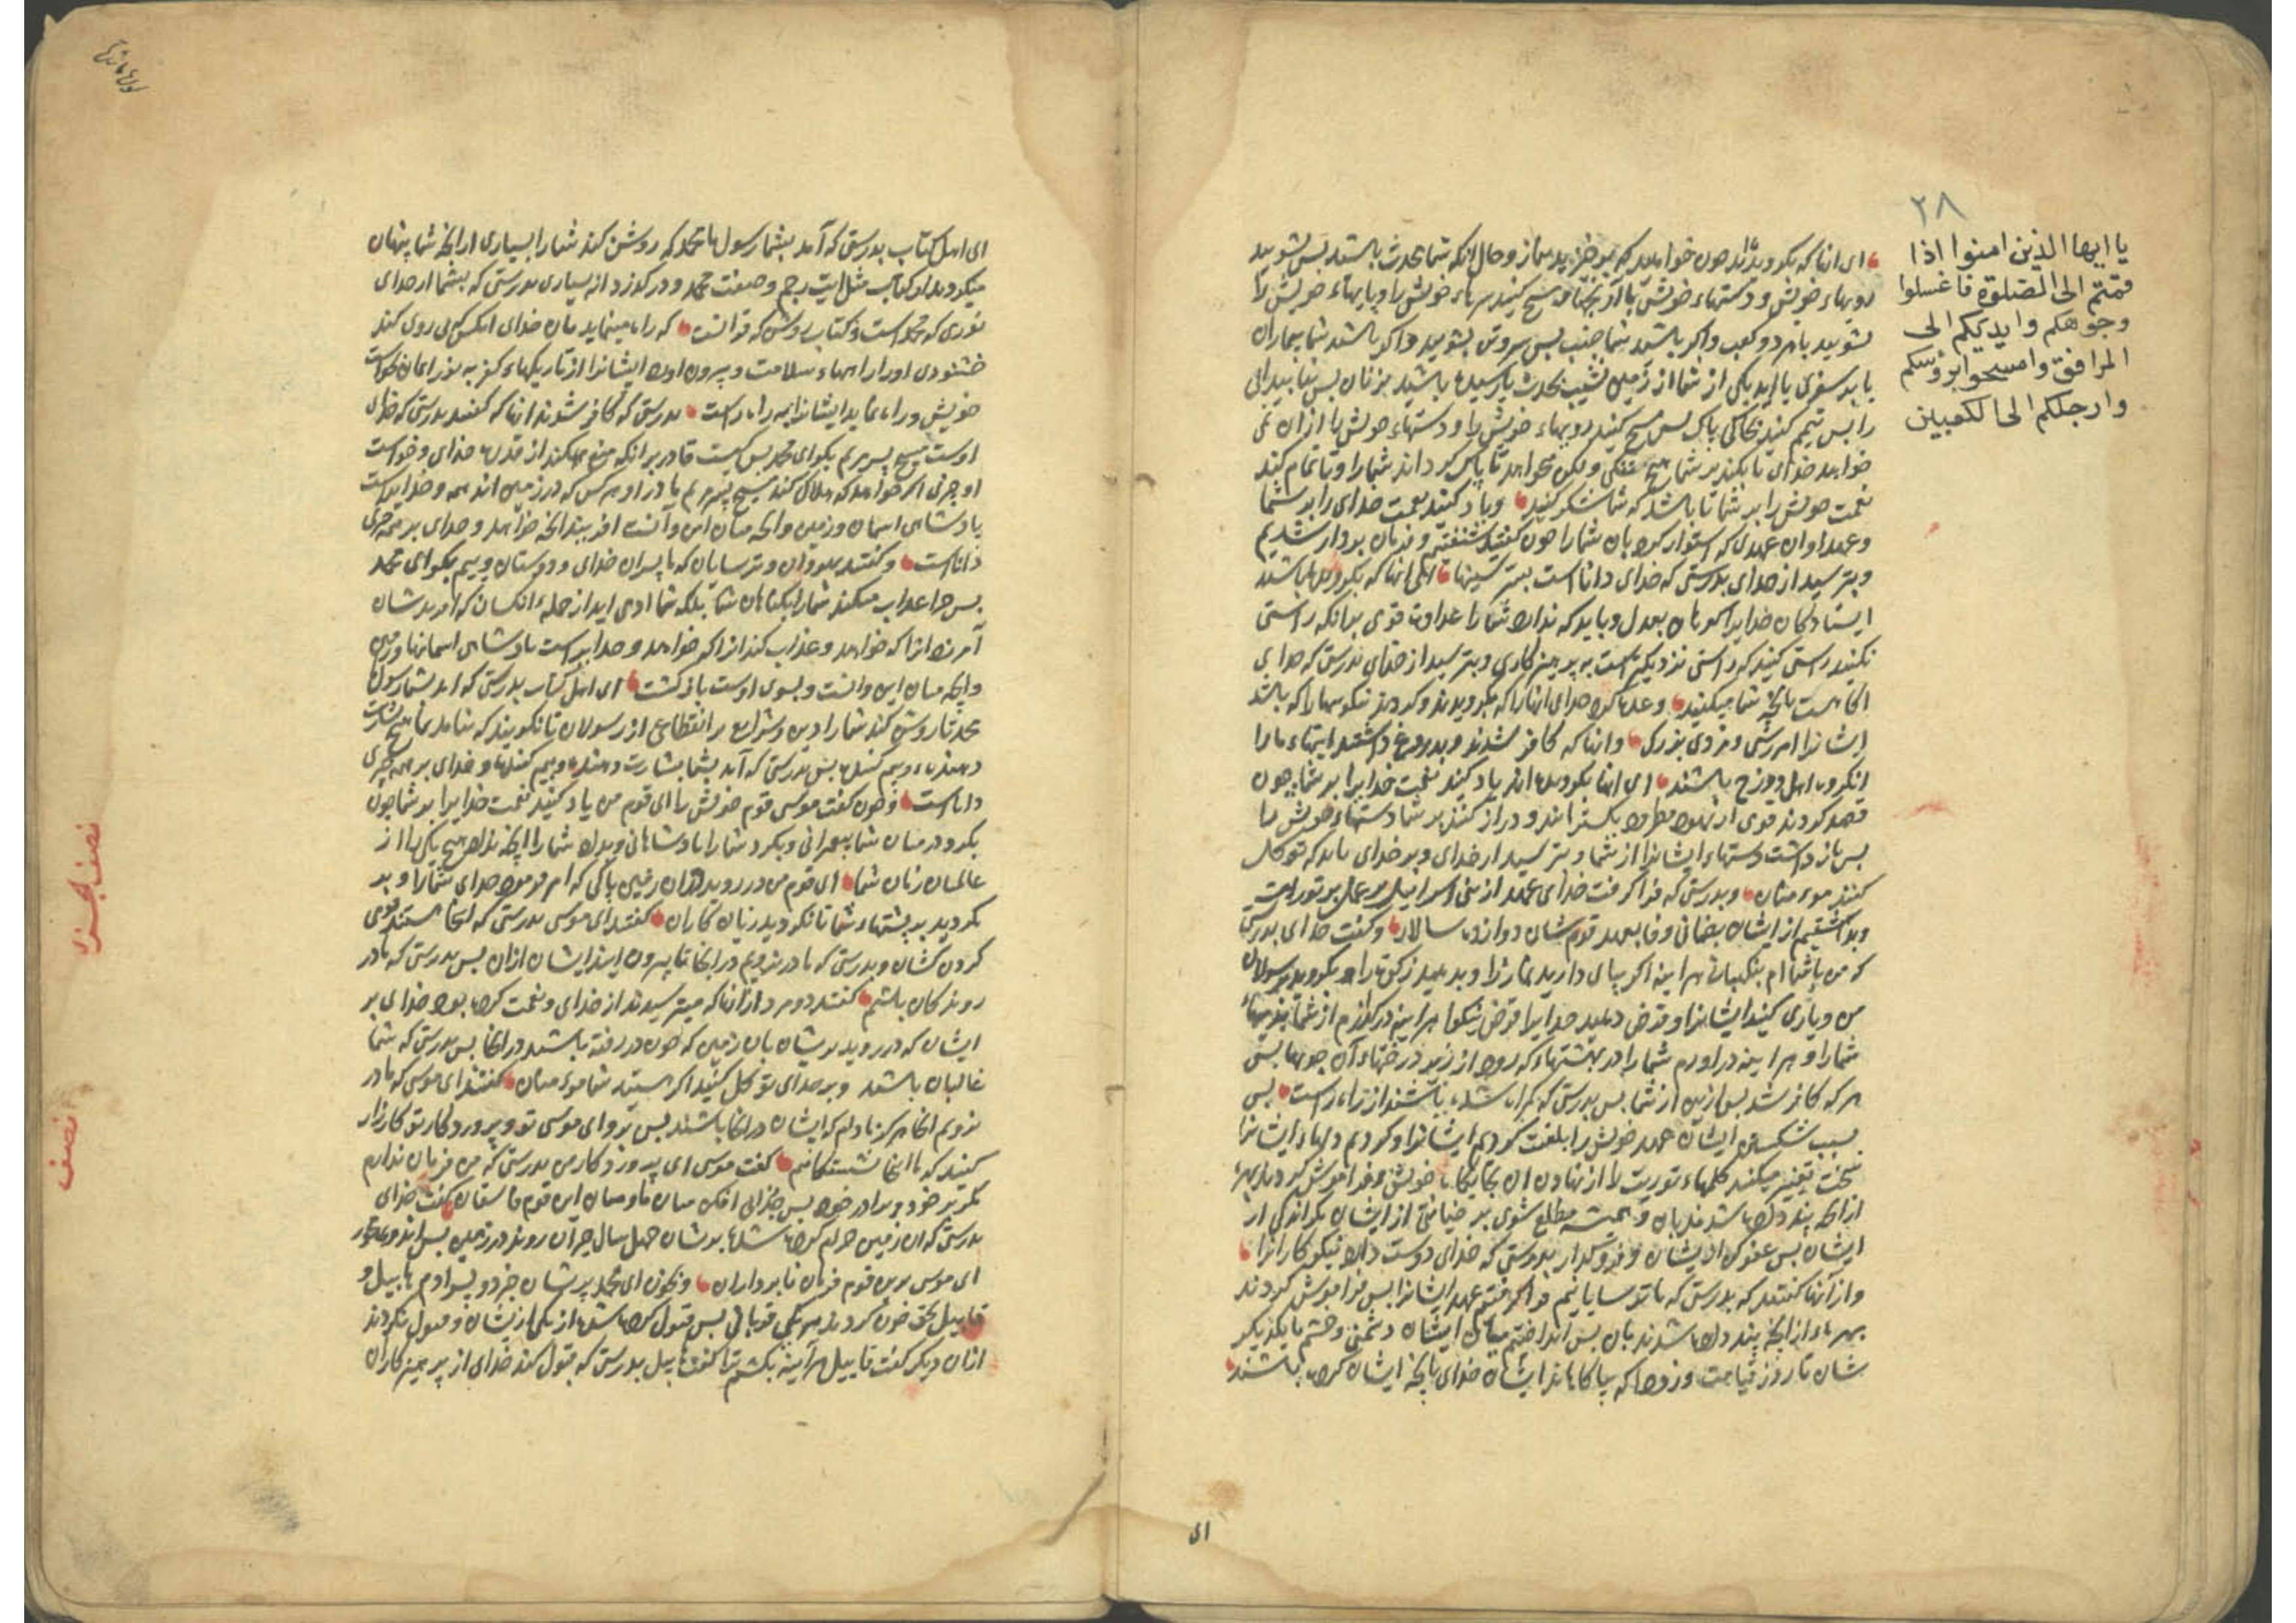 ٢٨
یا ایها الذین امنوا اذا
قمتم الی الصلوة فاغسلوا
وجوهکم وایدیکم الی
المرافق وامسحوا برؤسکم
وارجلکم الی الکعبین
ای انها که بکرویدند چون خواهید که برخیزید بنماز وحال انکه شما محدث باشید بس بشویید
رویهاء خویش ودستهاء خویش با آرنجها ومسح کنید سرهاء خویش را وپایهاء خویش را
بشویید باهر دو کعب واکر باشید شما جنب بس سروتن بشویید واکر باشید شما بیماران
یا بر سفری یا آید یکی از شما از زمین نشیب بحدث یا رسیده باشید بزنان بس نیابید ابی
را بس تیمم کنید بخاکی پاک بس مسح کنید رویهاء خویش را ودستهاء خویش را از ان نمی
خواهد خدای تا بکند بر شما هیچ تنکی ولکن میخواهد تا پاک کرداند شمارا وتا تمام کند
نعمت خویش را بر شما تا باشد که شما شکر کنید ویاد کنید نعمت خدای را بر شما
وعهد او ان عهدی که استوار کرد بان شمارا چون کفتید شنفتیم وفرمان بردار شدیم
وبترسید از خدای بدرستی که خدای داناست بسر سینها ای انها که بکرویده باشید
ایستادکان خدایرا کواهان بعدل وباید که ندارد شمارا عداوت قومی برانکه راستی
نکنید راستی کنید که راستی نزدیکتر است به پرهیزکاری وبترسید از خدای بدرستی که خدای
اکاهست بانچه شما میکنید وعده کرد خدای انها را که بکرویدند وکردند نیکوییها را که باشد
ایشانرا امرزش ومزدی بزرک وانها که کافر شدند وبدروغ داشتند ایتهاء مارا
انکروه اهل دوزخ باشند ای انها بکرویده اند یاد کنید نعمت خدایرا بر شما چون
قصد کردند قومی از یهود که بکسترانند ودراز کنند بر شما دستهاء خویش را
بس باز داشت دستهاء ایشانرا از شما وبترسید از خدای وبر خدای باید که توکل
کنند مومنان وبدرستی که فرا کرفت خدای عهد از بنی اسراییل بر عمل بر توریت
وبرانکیختیم از ایشان بضمانی وفا بعهد قوم شان دوازده سالار وکفت خدای بدرستی
که من باشماام بنکهبانی هر اینه اکر بپای دارید نماز را وبدهید زکوة را وبکروید برسولان
من ویاری کنید ایشانرا وقرض دهید خدایرا قرض نیکوا هر اینه درکذارم از شما بدیهاء
شمارا وهر اینه دراورم شمارا در بهشتهاء که رود از زیر درختهاء آن جویها بس
هر که کافر شد بس ازین از شما بس بدرستی که کمراه شده باشند از راه راست بس
بسبب شکستن ایشان عهد خویش را بلعنت کردیم ایشانرا وکردیم دلهاء ایشانرا
سخت تغییر میکنند کلمهاء توریت را از نهادن ان بجایکاه خویش وفراموش کردند بهره
از انچه پند داده شدند بان وهمیشه مطلع شوی بر خیانتی از ایشان مکر اندکی از
ایشان بس عفو کن از ایشان وفروکذار بدرستی که خدای دوست دارد نیکوکارانرا
واز آنها کفتند که بدرستی که ما ترسایانیم فرا کرفتیم عهد ایشانرا بس فراموش کردند
بهرهء از انچه پند داده شدند بان بس انداختیم میان ایشان دشمنی وخشم بایکدیکر
شان تا روز قیامت وزود که بیاکاهاند ایشان خدای بانچه ایشان کرده باشند
ای
ای اهل کتاب بدرستی که آمد بشما رسول ما محمد که روشن کند شمارا بسیاری از انچه شما پنهان
میکردید از کتاب مثل ایت رجم وصفت محمد ودرکذرد از بسیاری بدرستی که بشما از خدای
نوری که محمد است وکتاب روشن که قرانست که راه مینماید بان خدای انکس که پی روی کند
خشنودی اورا راههاء سلامت وبیرون اورد ایشانرا از تاریکیهاء کفر به نور ایمان بخواست
خویش وراه نماید ایشانرا به راه راست بدرستی که کافر شوند انها که کفتند بدرستی که خدای
اوست مسیح پسر مریم بکو ای محمد بس کیست قادر برانکه منع بکند از قدرت خدای وخواست
او چیزی اکر خواهد که هلاک کند مسیح پسر مریم با مادر او وهر کس که در زمین اند همه وخدایراست
پادشاهی اسمان وزمین وانچه میان این وآنست افریند انچه خواهد وخدای بر همه چیزی
تواناست وکفتند یهودان وترسایان که ما پسران خدای ودوستان وییم بکو ای محمد
بس چرا عذاب میکند شمارا بکناهان شما بلکه شما ادمی اید از جمله انکسان که افریدشان
آمرزد انرا که خواهد وعذاب کند انرا که خواهد وخدایراست پادشاهی اسمانها وزمین
وانچه میان این وانست وبسوی اوست بازکشت ای اهل کتاب بدرستی که امد بشما رسول ما
محمد تا روشن کند شمارا دین وشرایع بر انقطاعی از رسولان تا نکویند که نیامد بما هیچ بشارت
دهندهء وبیم کننده بس بدرستی که آمد بشما بشارت دهنده وبیم کننده وخدای بر همه چیزی
داناست وچون کفت موسی قوم خویش را ای قوم من یاد کنید نعمت خدایرا بر شما چون
بکرد در میان شما پیغمبرانی وبکرد شمارا پادشاهانی وبداد شمارا انچه نداد هیچ یکی را از
عالمیان زمان شما ای قوم من در روید دران زمین پاکی که امر فرمود خدای شمارا وبر
مکردید بر پشتهاء شما تا نکردید زیان کاران کفتند ای موسی بدرستی که انجا هستند قومی
کردن کشان وبدرستی که ما در نرویم در انجا تا بیرون ایند ایشان ازان بس بدرستی که ما در
روندکان باشیم کفتند دو مرد از آنها که میترسیدند از خدای ونعمت کرده بود خدای بر
ایشان که در روید بر ایشان بان زمین که چون در رفته باشید در انجا بس بدرستی که شما
غالبان باشید وبر خدای توکل کنید اکر هستید شما مومنان کفتند ای موسی که ما در
نرویم انجا هرکز مادام که ایشان در انجا باشند بس برو ای موسی تو وپروردکار تو کارزار
کنید که ما اینجا نشستکانیم کفت موسی ای پروردکار من بدرستی که من فرمان ندارم
مکر بر خود وبرادر خود بس جدایی افکن میان ما ومیان این قوم فاسقان کفت خدای
بدرستی که ان زمین حرام کرده شده بر ایشان چهل سال حیران روند در زمین بس اندوه مخور
ای موسی برین قوم فرمان نابرداران وبخوان ای محمد بر ایشان خبر دو پسر ادم هابیل و
قابیل بحق چون کردند هر یکی قربانی بس قبول کرده شد از یکی از ایشان وقبول نکردند
ازان دیکر کفت قابیل هر آینه بکشم ترا کفت هابیل بدرستی که قبول کند خدای از پرهیزکاران
نصف الجزء
نصف